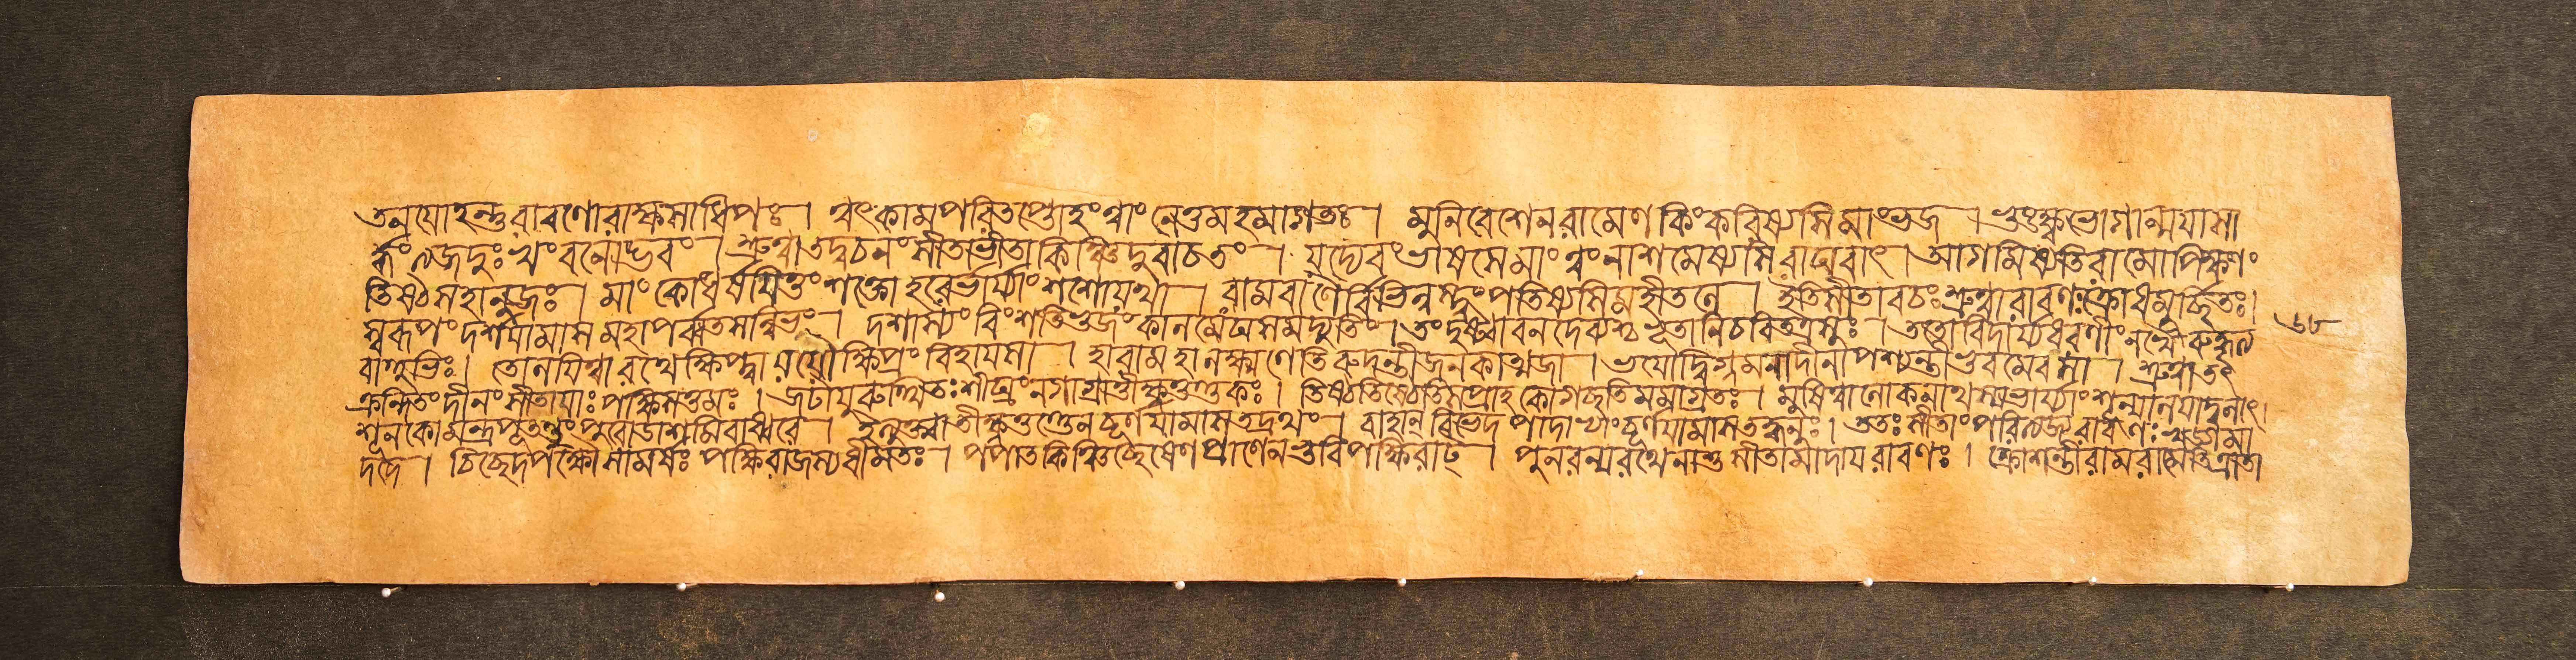 তনযোহন্তু রাবণো রাক্ষসাধিপঃ। ত্বৎকামপরিতপ্তোহং ত্বাং নেতুমহমাগতঃ। মুনিবেশেন রামেণ কিং করিষ্যসি মাং ভজ। ভুংক্ষ্ব ভোগান্ময়া সা
র্দ্ধং ত্যজ দুঃখং বনোদ্ভবং। শ্রুত্বা তদ্বচনং সীতা ভীতা কিঞ্চিদুবাচ তং। যদ্যেবং ভাষসে মাং ত্বং নাশমেষ্যসি রাঘবাৎ। আগমিষ্যতি রামোপি ক্ষণং
তিষ্ঠ সহানুজঃ। মাং কো ধর্ষয়িতুং শক্তো হরের্ভার্য্যাং শশো যথা। রামবাণৈর্বিভিন্নস্ত্বং পতিষ্যসি মহীতলে। ইতি সীতাবচঃ শ্রুত্বা রাবণঃ ক্রোধমূর্চ্ছিতঃ।
স্বরূপং দর্শয়ামাস মহাপর্ব্বতসন্নিভং। দশাস্যং বিংশতিভুজং কালমেঘসমদ্যুতিং। তং দৃষ্ট্বা বনদেব্যশ্চ ভূতানি চ বিতত্রসুঃ। ততো বিদার্য্য ধরণীং নখৈরুদ্ধৃত্য ৬৮
বাহুভিঃ। তোলয়িত্বা রথে ক্ষিপ্ত্বা যযৌ ক্ষিপ্রং বিহায়সা। হা রাম হা লক্ষ্মণেতি রুদন্তী জনকাত্মজা। ভয়োদ্বিগ্নমনা দীনা পশ্যন্তী ভুবমেব সা। শ্রুত্বা তৎ
ক্রন্দিতং দীনং সীতায়াঃ পক্ষিসত্তমঃ। জটায়ুরুত্থিতঃ শীঘ্রং নগাগ্রাত্তীক্ষ্ণতুণ্ডকঃ। তিষ্ঠ তিষ্ঠেতি তং প্রাহ কো গচ্ছতি মমাগ্রতঃ। মুষিত্বা লোকনাথস্য ভার্য্যাং শূন্যালয়াদ্বনাৎ।
শূনকো মন্ত্রপূতং ত্বং পুরোডাশমিবাধ্বরে। ইত্যুক্ত্বা তীক্ষ্ণতুণ্ডেন চূর্ণয়ামাস তদ্রথং। বাহান্ বিভেদ পাদাভ্যাং চূর্ণয়ামাস তদ্ধনুঃ। ততঃ সীতাং পরিত্যজ্য রাবণঃ খড্গমা
দদে। চিচ্ছেদ পক্ষৌ সামর্ষঃ পক্ষিরাজস্য ধীমতঃ। পপাত কিঞ্চিচ্ছেষেণ প্রাণেন ভুবি পক্ষিরাট্। পুনরন্যরথেনাশু সীতামাদায় রাবণঃ। ক্রোশন্তী রামরামেতি ত্রাতা